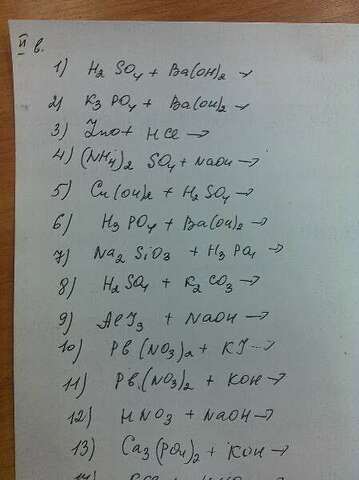 II в.
1) H2 SO4 + Ba(OH)2 →
2) K3 PO4 + Ba(OH)2 →
3) ZnO + HCl →
4) (NH4)2 SO4 + NaOH →
5) Cu(OH)2 + H2 SO4 →
6) H3 PO4 + Ba(OH)2 →
7) Na2 SiO3 + H3 PO4 →
8) H2 SO4 + K2 CO3 →
9) AlI3 + NaOH →
10) Pb (NO3)2 + KI →
11) Pb (NO3)2 + KOH →
12) HNO3 + NaOH →
13) Ca3 (PO4)2 + KOH →